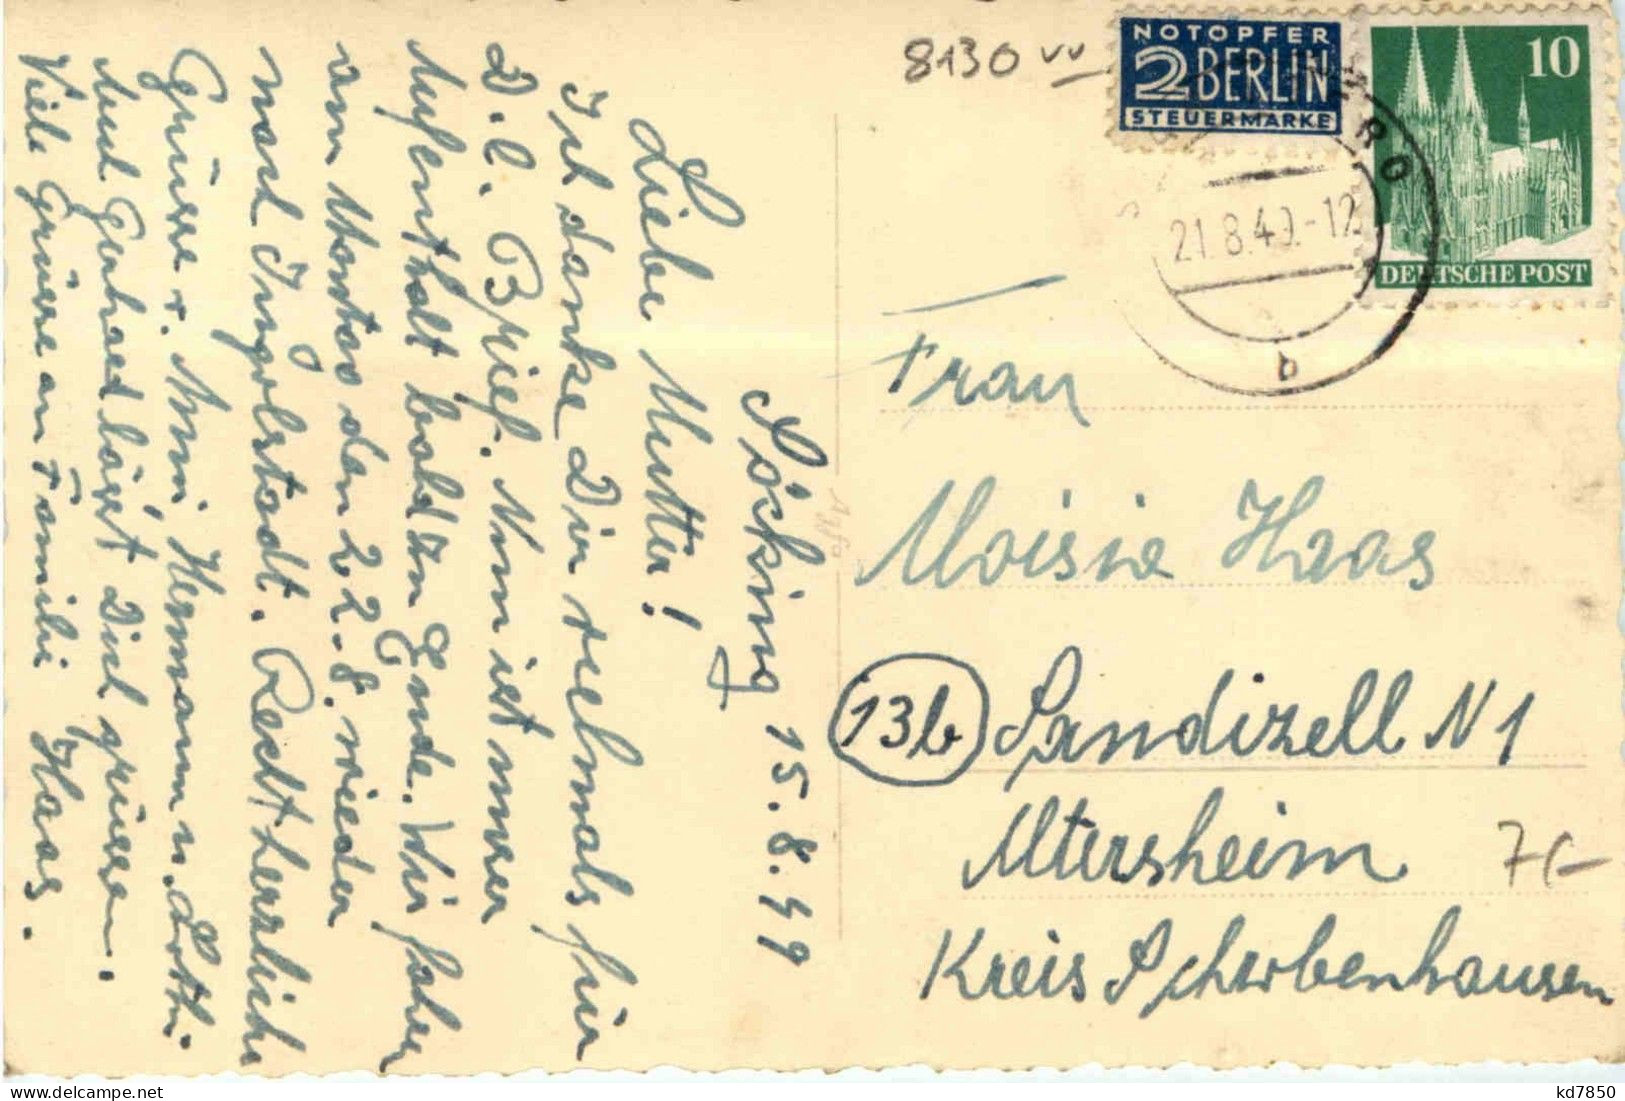 Söcking 15.8.49
Liebe Mutter!
Ich danke Dir vielmals für
D. l. Brief. Nun ist unser
Aufenthalt bald zu Ende. Wir fahren
am Montag den 22.8. wieder
nach Ingolstadt. Recht herzliche
Grüsse v. Anni, Hermann u. Lotti.
Auch Gerhard lässt Dich grüssen.
Viele Grüsse an Familie Haas.
8130 vv
NOTOPFER
2 BERLIN
STEUERMARKE
10
DEUTSCHE POST
21.8.49.-12
b
Frau
Aloisia Haas
13b Sandizell N 1
Kreis Schrobenhausen
kd7850